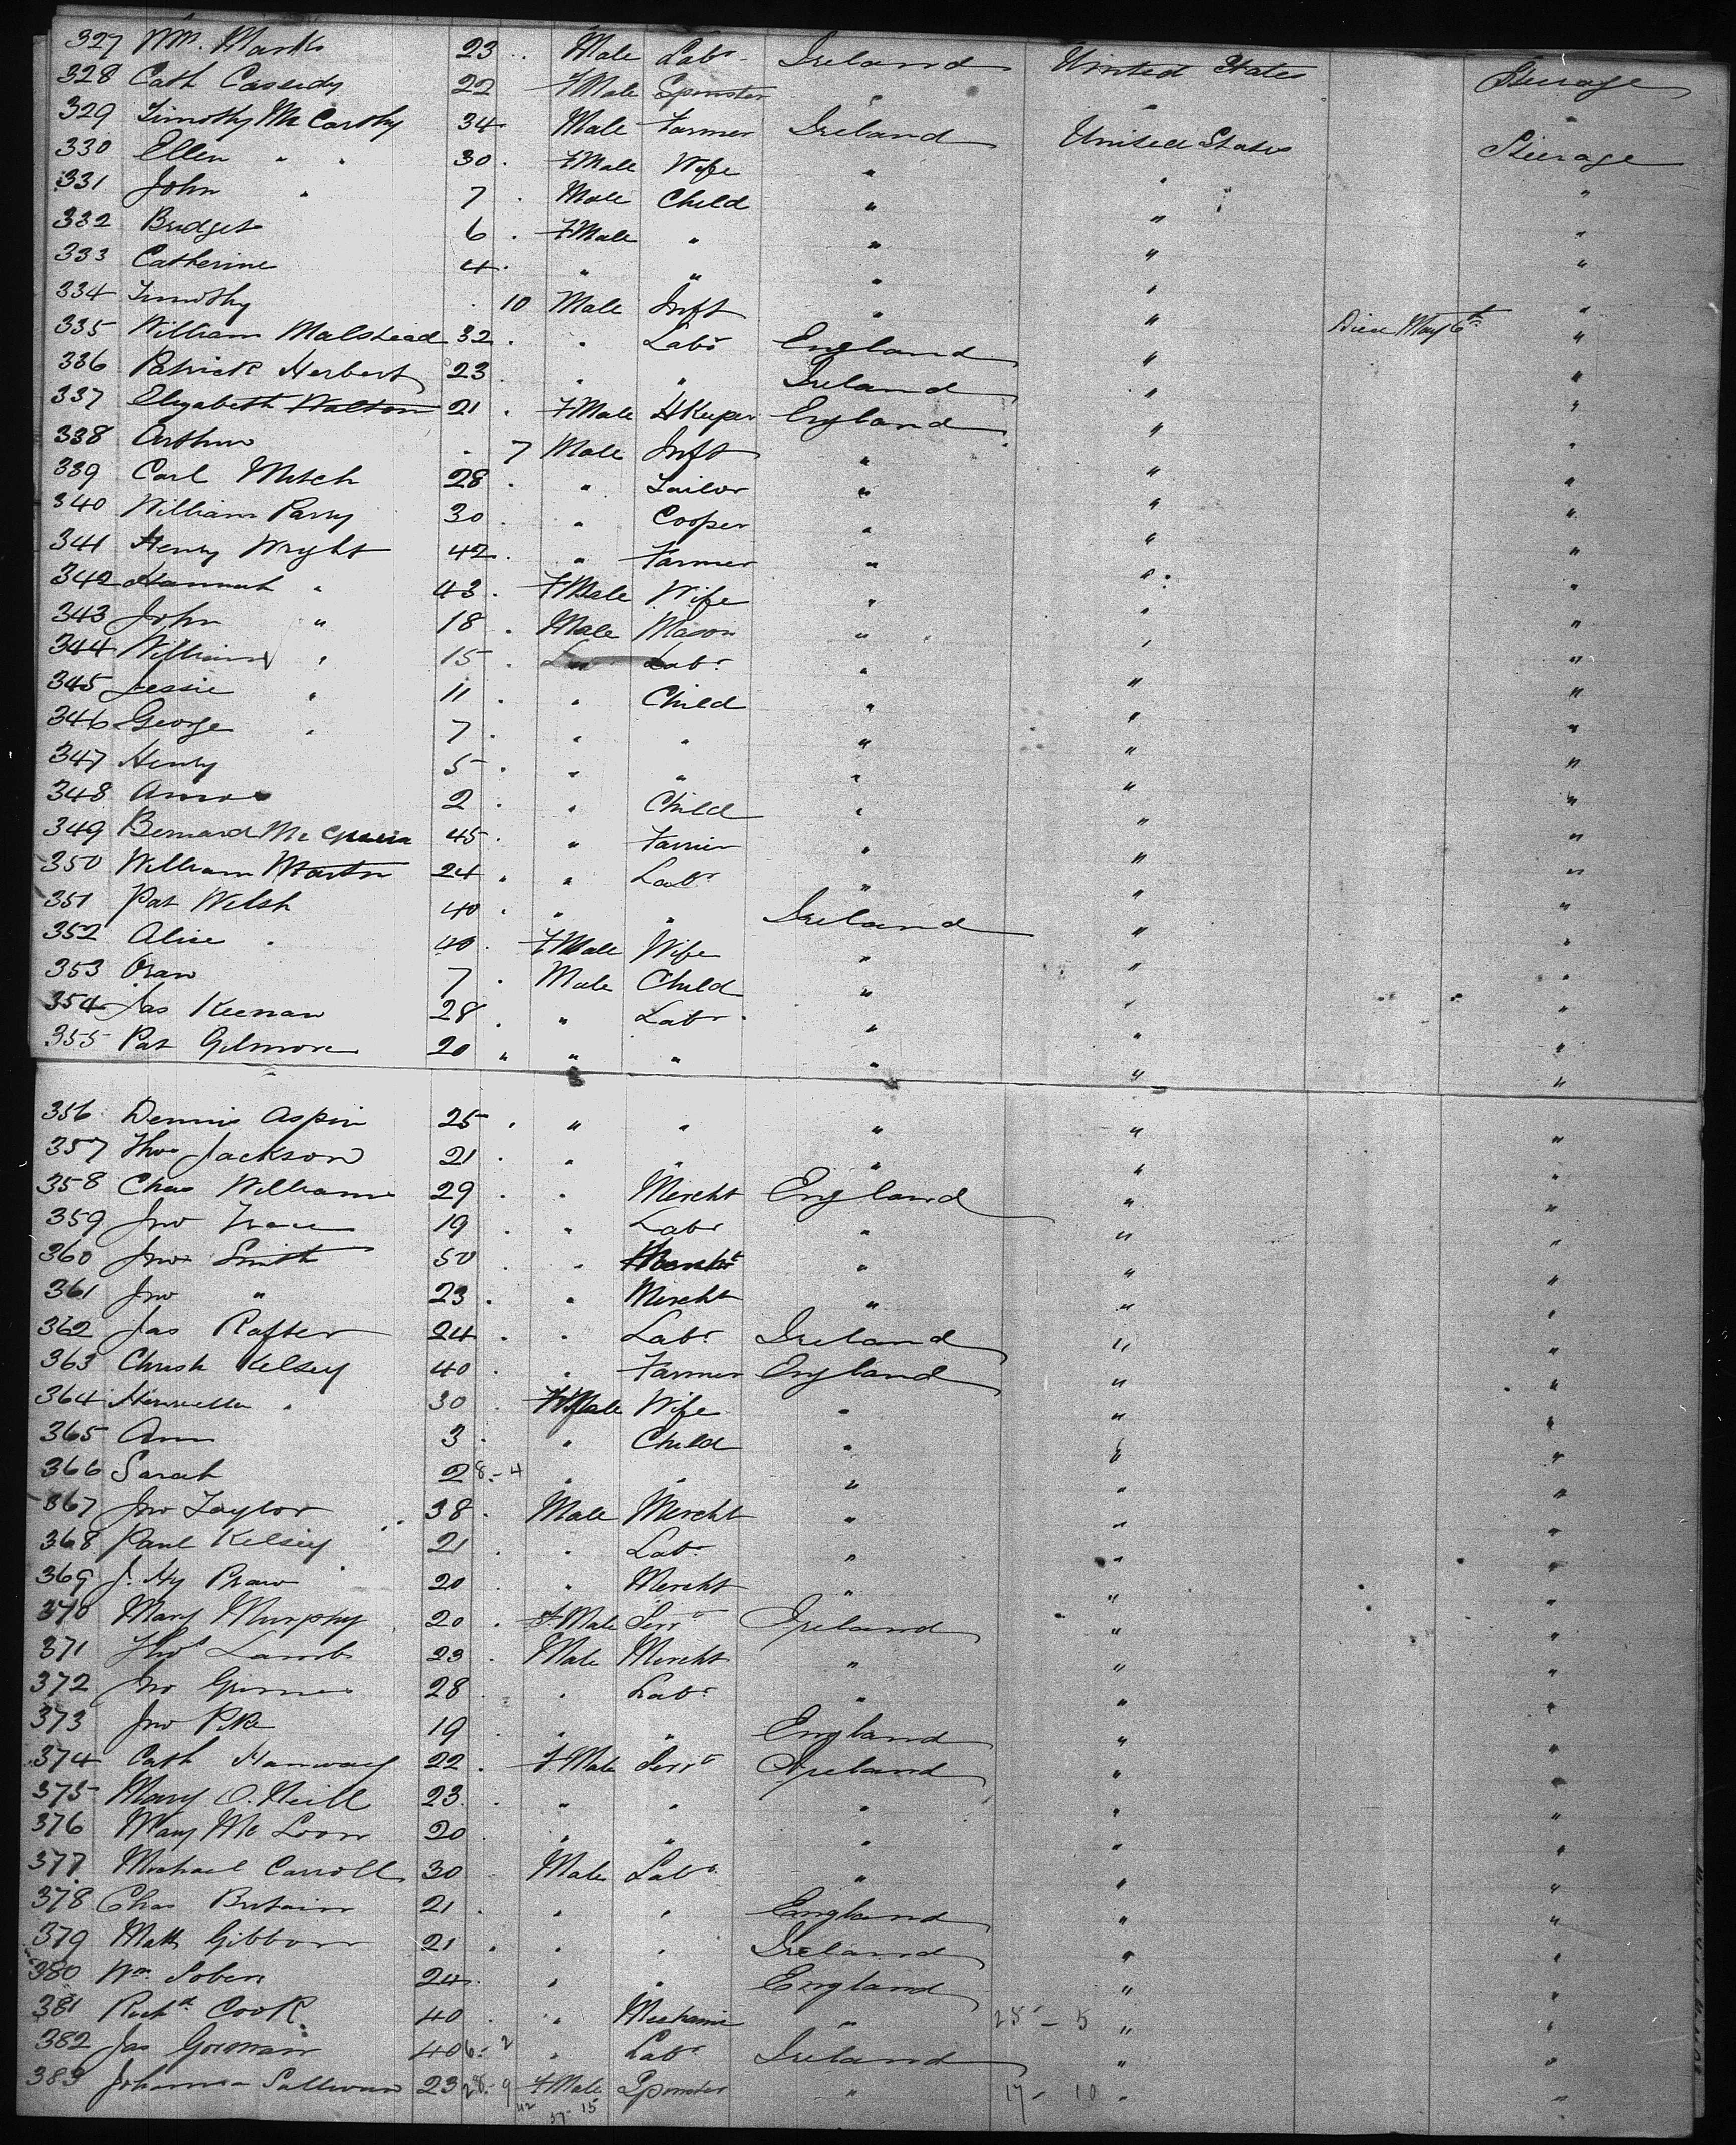 327 Wm. Marks 23 Male Labr. Ireland United States Steerage
328 Cath Cassidy 22 FMale Spinster " " "
329 Timothy McCarthy 34 Male Farmer Ireland United States Steerage
330 Ellen " " 30 FMale Wife " " "
331 John " 7 Male Child " " "
332 Bridget 6 FMale " " " "
333 Catherine 4 " " " " "
334 Timothy 10 Male Inft " " Died May 6th "
335 William Malstead 32 " Labr England " "
336 Patrick Herbert 23 " " Ireland " "
337 Elizabeth Walton 21 FMale HKeeper England " "
338 Arthur 7 Male Inft " " "
339 Carl Mitch 28 " Tailor " " "
340 William Parry 30 " Cooper " " "
341 Henry Wright 42 " Farmer " " "
342 Hannah " 43 FMale Wife " " "
343 John " 18 Male Mason " " "
344 William " 15 Labr. " " "
345 Jessie " 11 " Child " " "
346 George " 7 " " " " "
347 Henry 5 " " " " "
348 2 " Child " " "
349 Bernard Mc 45 " Farrier " " "
350 William Martin 24 " Labr " " "
351 Pat Welsh 40 " " Ireland " "
352 Alice " 40 FMale Wife " " "
353 7 Male Child " " "
354 Jas Keenan 28 " Labr. " " "
355 Pat Gilmore 20 " " " " "
356 Dennis Aspin 25 " " " " "
357 Thos Jackson 21 " " " " "
358 Chas Williams 29 " Mercht England " "
359 Jno 19 " Labr " " "
360 Jno Smith 50 " " " "
361 Jno " 23 " Mercht " " "
362 Jas Rafter 24 " Labr Ireland " "
363 Christ Kelsey 40 " Farmer England " "
364 " 30 FMale Wife " " "
365 Ann 3 " Child " " "
366 Sarah 2 8-4 " " " " "
367 Jno Taylor 38 Male Mercht " " "
368 Paul Kelsey 21 " Labr " " "
369 J. Hy 20 " Mercht " " "
370 Mary Murphy 20 F.Male Servt Ireland " "
371 Thos Lamb 23 Male Mercht " " "
372 Jno 28 " Labr. " " "
373 Jno Pike 19 " " England " "
374 Cath Hanway 22 F.Male Servt Ireland " "
375 Mary O.Neill 23 " " " " "
376 Mary Mc Loon 20 " " " " "
377 Michael Carroll 30 Male Labr. " " "
378 Chas Britain 21 " " England " "
379 Matt Gibbon 21 " " Ireland " "
380 Wm. 24 " " England " "
381 Richd Cook 40 " Mechanic " 25-5 " "
382 Jas Gorman 40 6-2 " Labr Ireland " "
383 Johanna Sullivan 23 28-9 FMale Spinster " 17-10 " "